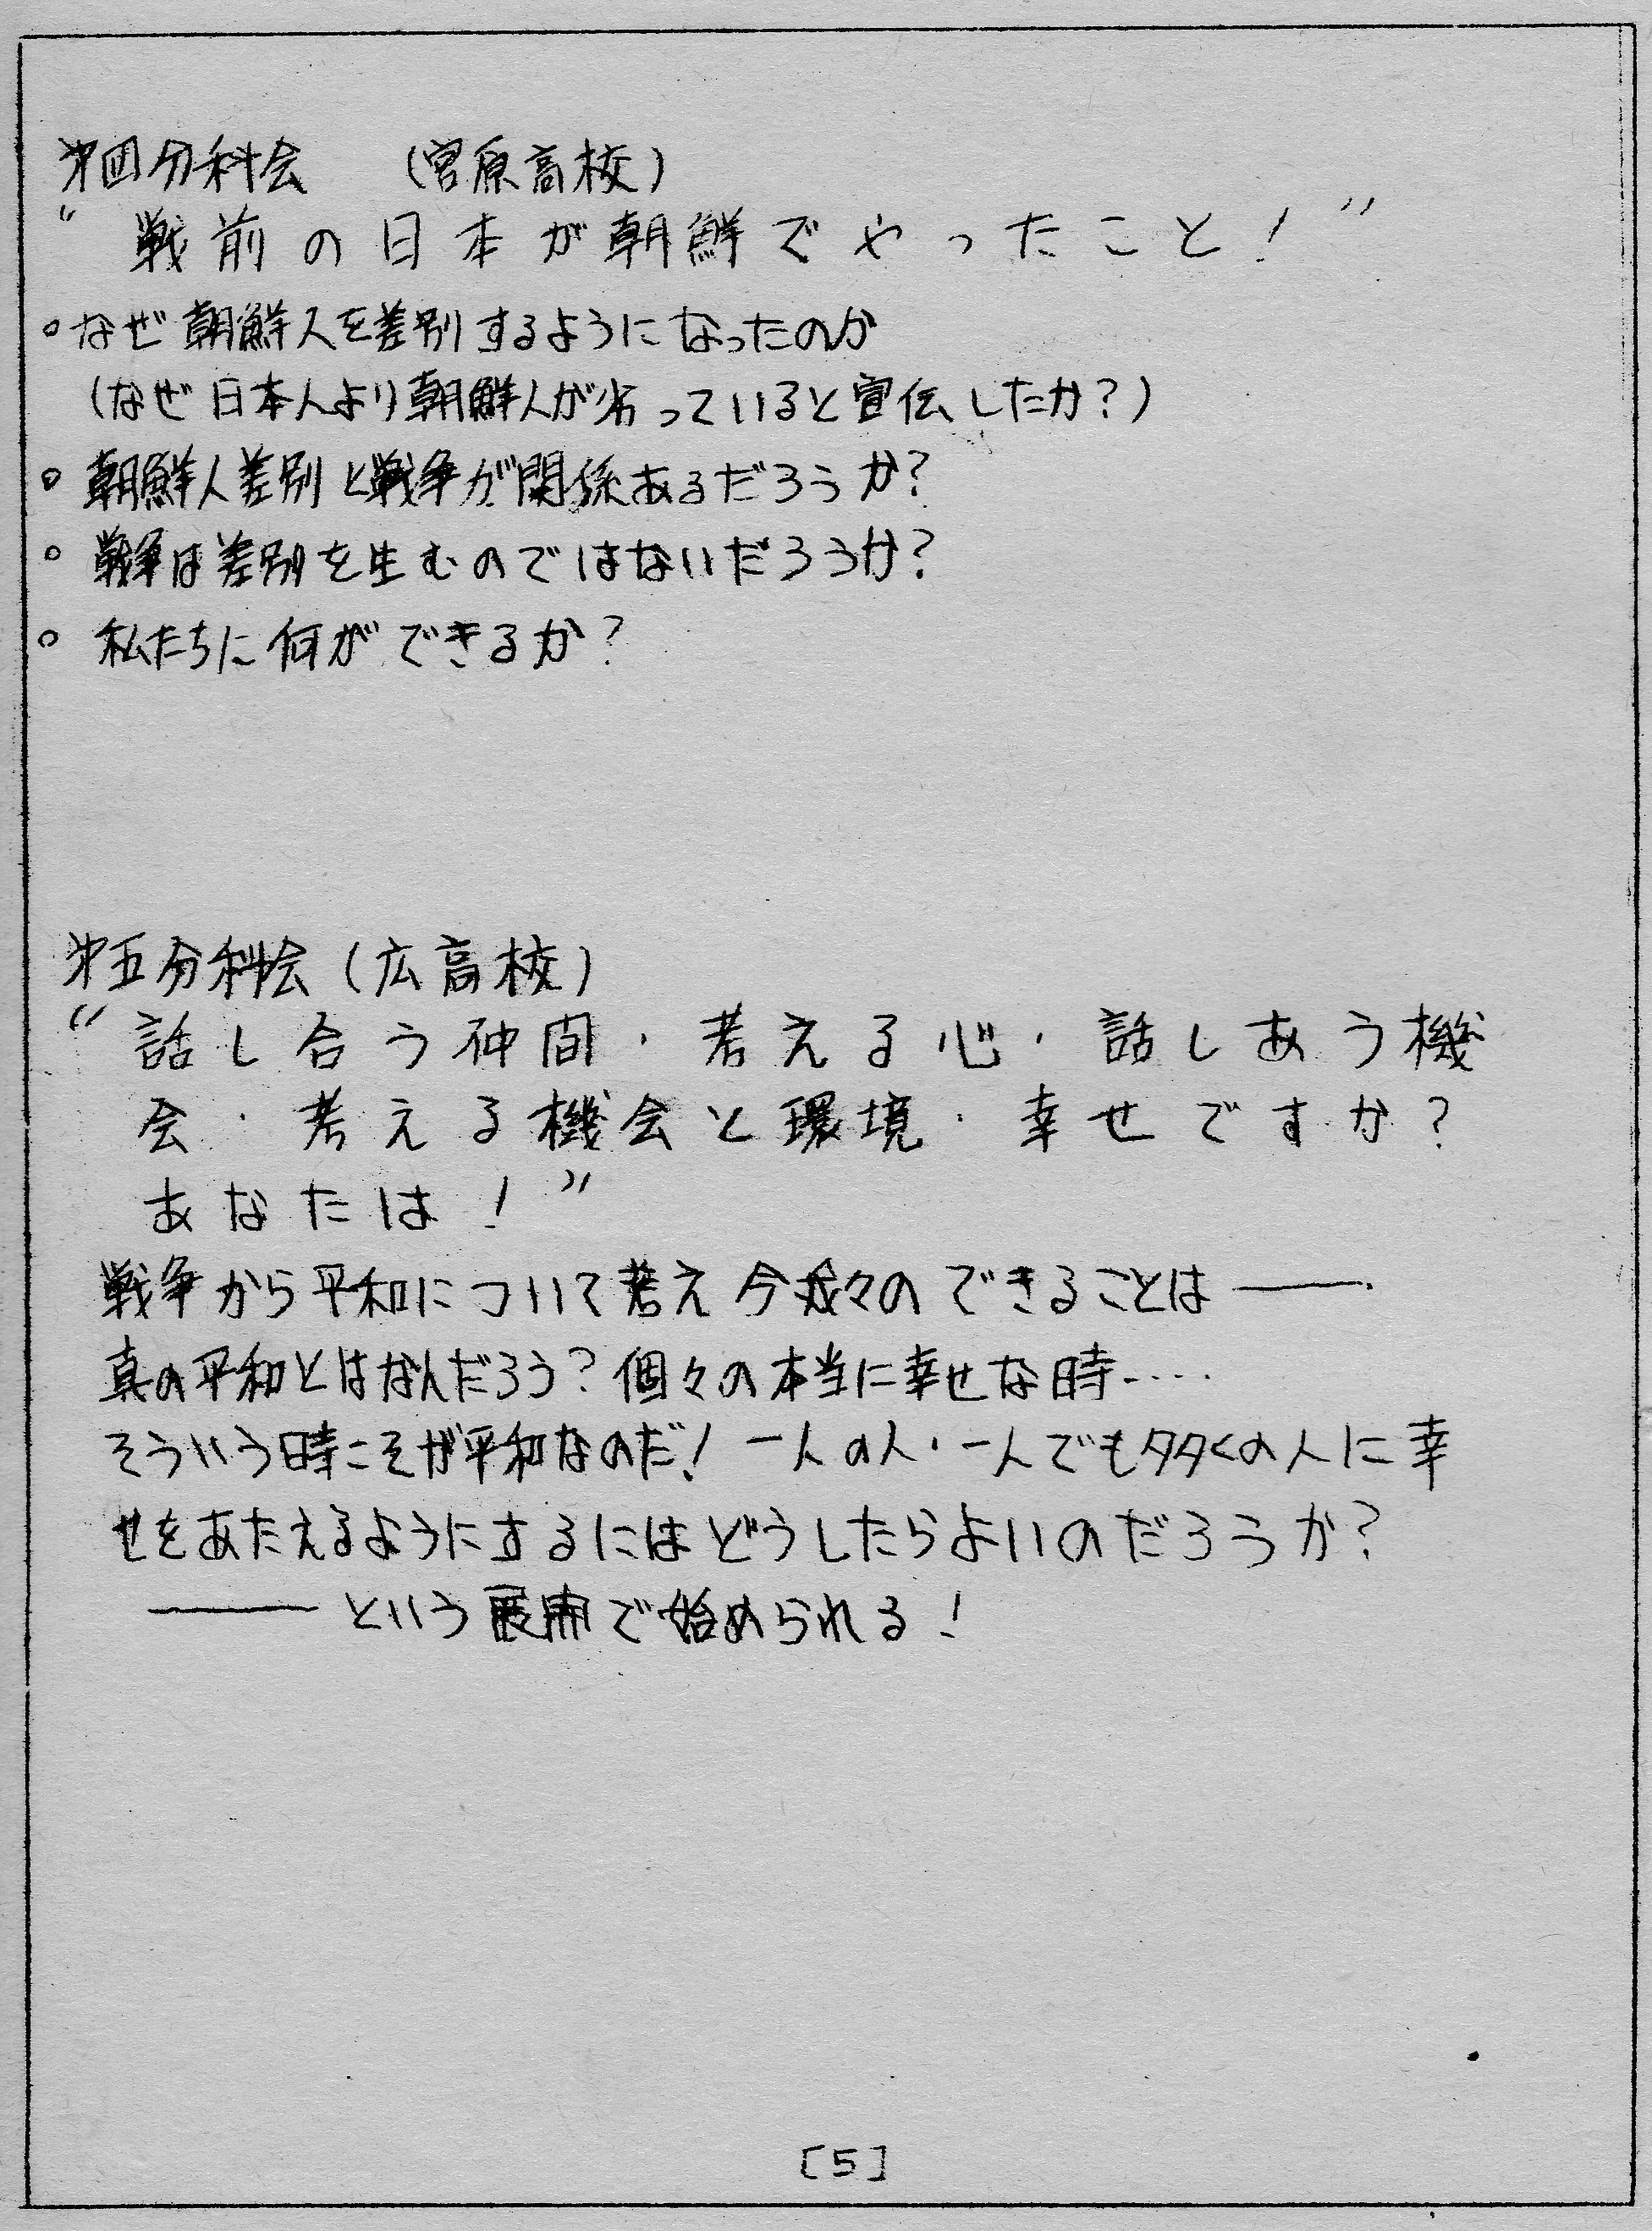 第四分科会　（宮原高校）
“戦前の日本が朝鮮でやったこと！”
○なぜ朝鮮人を差別するようになったのか
（なぜ日本人より朝鮮人が劣っていると宣伝したか？）
○朝鮮人差別と戦争が関係あるだろうか？
○戦争は差別を生むのではないだろうか？
○私たちに何ができるか？
第五分科会（広高校）
“話し合う仲間・考える心・話しあう機
会・考える機会と環境・幸せですか？
あなたは！”
戦争から平和について考え今我々のできることは――
真の平和とはなんだろう？個々の本当に幸せな時‥‥
そういう時こそが平和なのだ！一人の人・一人でも多くの人に幸
せをあたえるようにするにはどうしたらよいのだろうか？
――という展開で始められる！
[5]